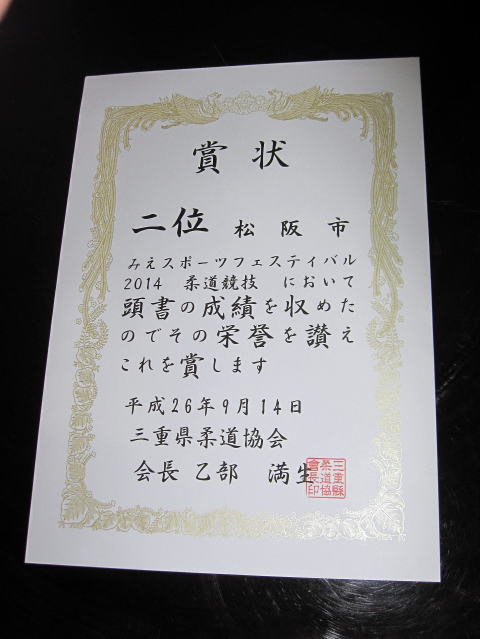 賞状
二位 松阪市
みえスポーツフェスティバル
2014 柔道競技 において
頭書の成績を収めた
のでその栄誉を讃え
これを賞します
平成26年9月14日
三重県柔道協会
会長 乙部 満生
三重縣
柔道協
會長印